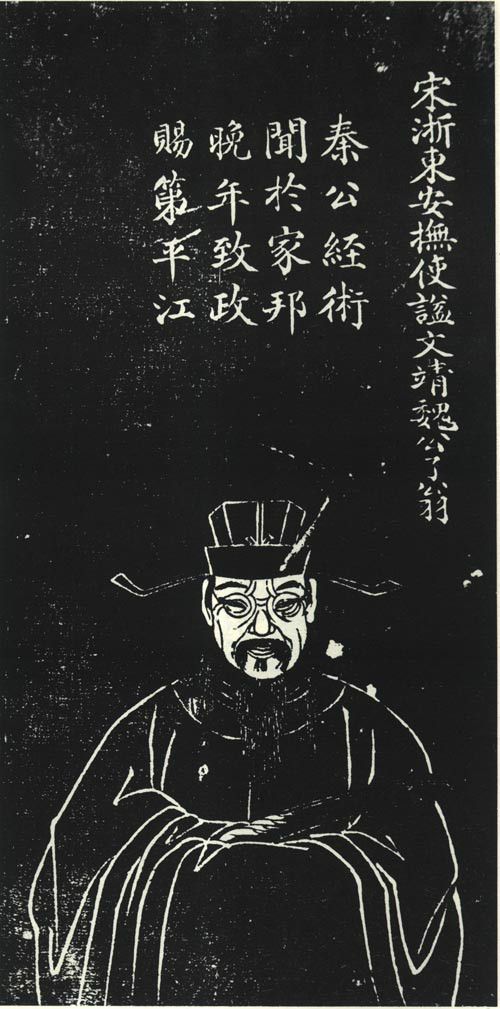 宋浙東安撫使諡文靖魏公了翁
秦公經術
聞於家邦
晚年致政
賜第平江